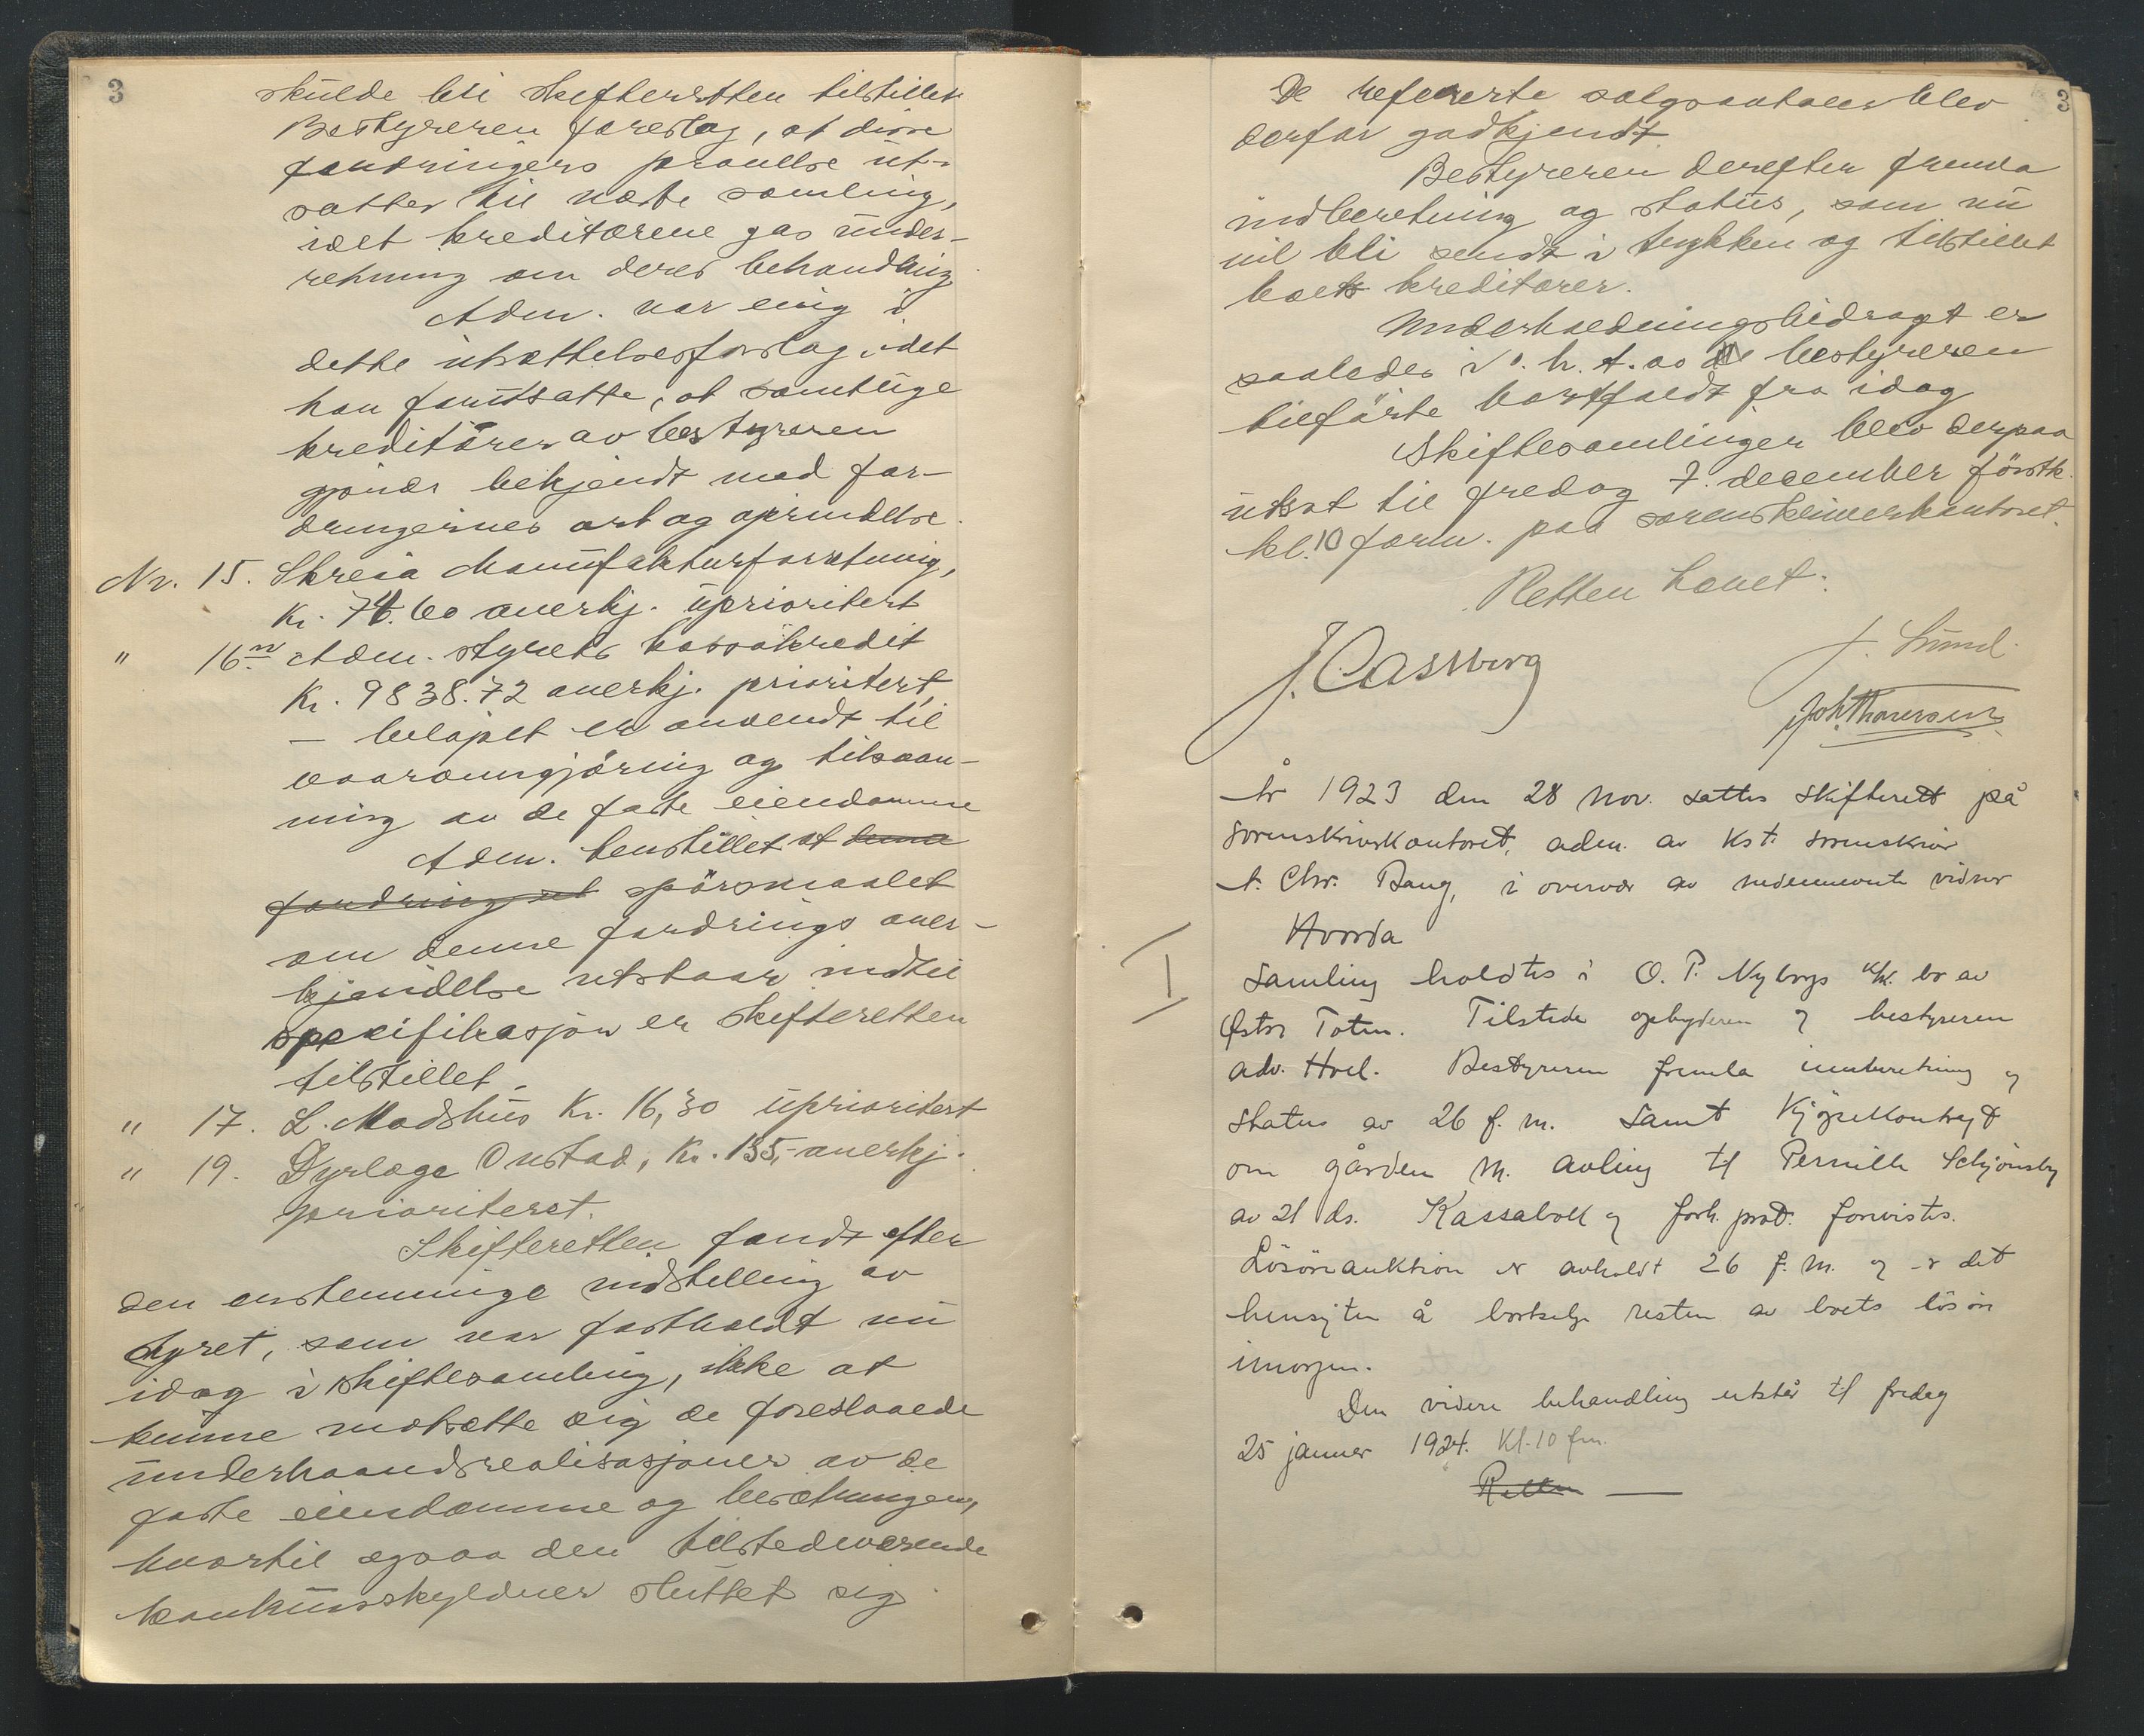 3
skulde bli skifteretten tilstillet
Bestyreren foreslog, at disse
fordringers prøvelse ut-
sættes til næste samling,
idet kreditorene gas under-
retning om deres behandling
Adm. var enig i
dette utsættelsesforslag, idet
han forutsatte, at samtlige
kreditorer av bestyreren
gjøres bekjendt med for-
dringernes art og oprindelse.
Nr. 15. Skreia Manufakturforretning,
Kr. 74.60 anerkj. uprioritert
" 16. Adm. styrets kassakredit
Kr. 9838.72 anerkj. prioritert,
— beløpet er anvendt til
vaaronngjöring og tilsaan-
ning av de faste eiendomme
Adm. henstillet at denne
fordring ut spörsmaalet
om denne fordrings aner-
kjendelse utstaar indtil
spesifikasjon er skifteretten
tilstillet.
" 17. L. Madshus Kr. 16,30 uprioritert
" 19. Dyrlæge Onstad, Kr. 135,- anerkj.
prioriteret.
Skifteretten fandt efter
den enstemmige indstilling av
styret, som var fastholdt nu
idag i skiftesamling, ikke at
kunne motsætte sig de foreslaaede
underhaandsrealisasjoner av de
faste eiendomme og besætningen,
hvortil ogsaa den tilstedeværende
konkursskyldner sluttet sig
3
De refererte salgsavtaler blev
derfor godkjendt.
Bestyreren derefter fremla
indberetning og status, som nu
vil bli sendt i trykken og tilstillet
boets kreditorer.
Underholdningsbidraget er
saaledes i h. t. av bestyreren
tilförte bortfaldt fra idag
Skiftesamlingen blev derpaa
utsat til fredag 7. december förstk.
kl. 10 form. paa sorenskriverkontoret.
Retten hævet:
J. Castberg
J. Lund.
Joh. Thoresen
År 1923 den 28 nov. sattes skifterett på
sorenskriverkontoret, adm. av kst. sorenskriver
A. Chr. Bang, i overvær av nedennevnte vidner
Hvorda
I
Samling holdtes i O. P. Nyborgs k/k. bo av
Østre Toten. Tilstede opbyderen og bestyreren
adv. Hoel. Bestyreren fremla innberetning og
status av 26 f. m. samt kjöpekontrakt
om gården m. avling til Pernille Schjönsby
av 21 ds. Kassabok og forh. prot. forevistes.
Lösöreauktion er avholdt 26 f. m. og er det
hensigten å bortselge resten av boets lösöre
imorgen.
Den videre behandling utstår til fredag
25 januar 1924. Kl. 10 fm.
Retten —